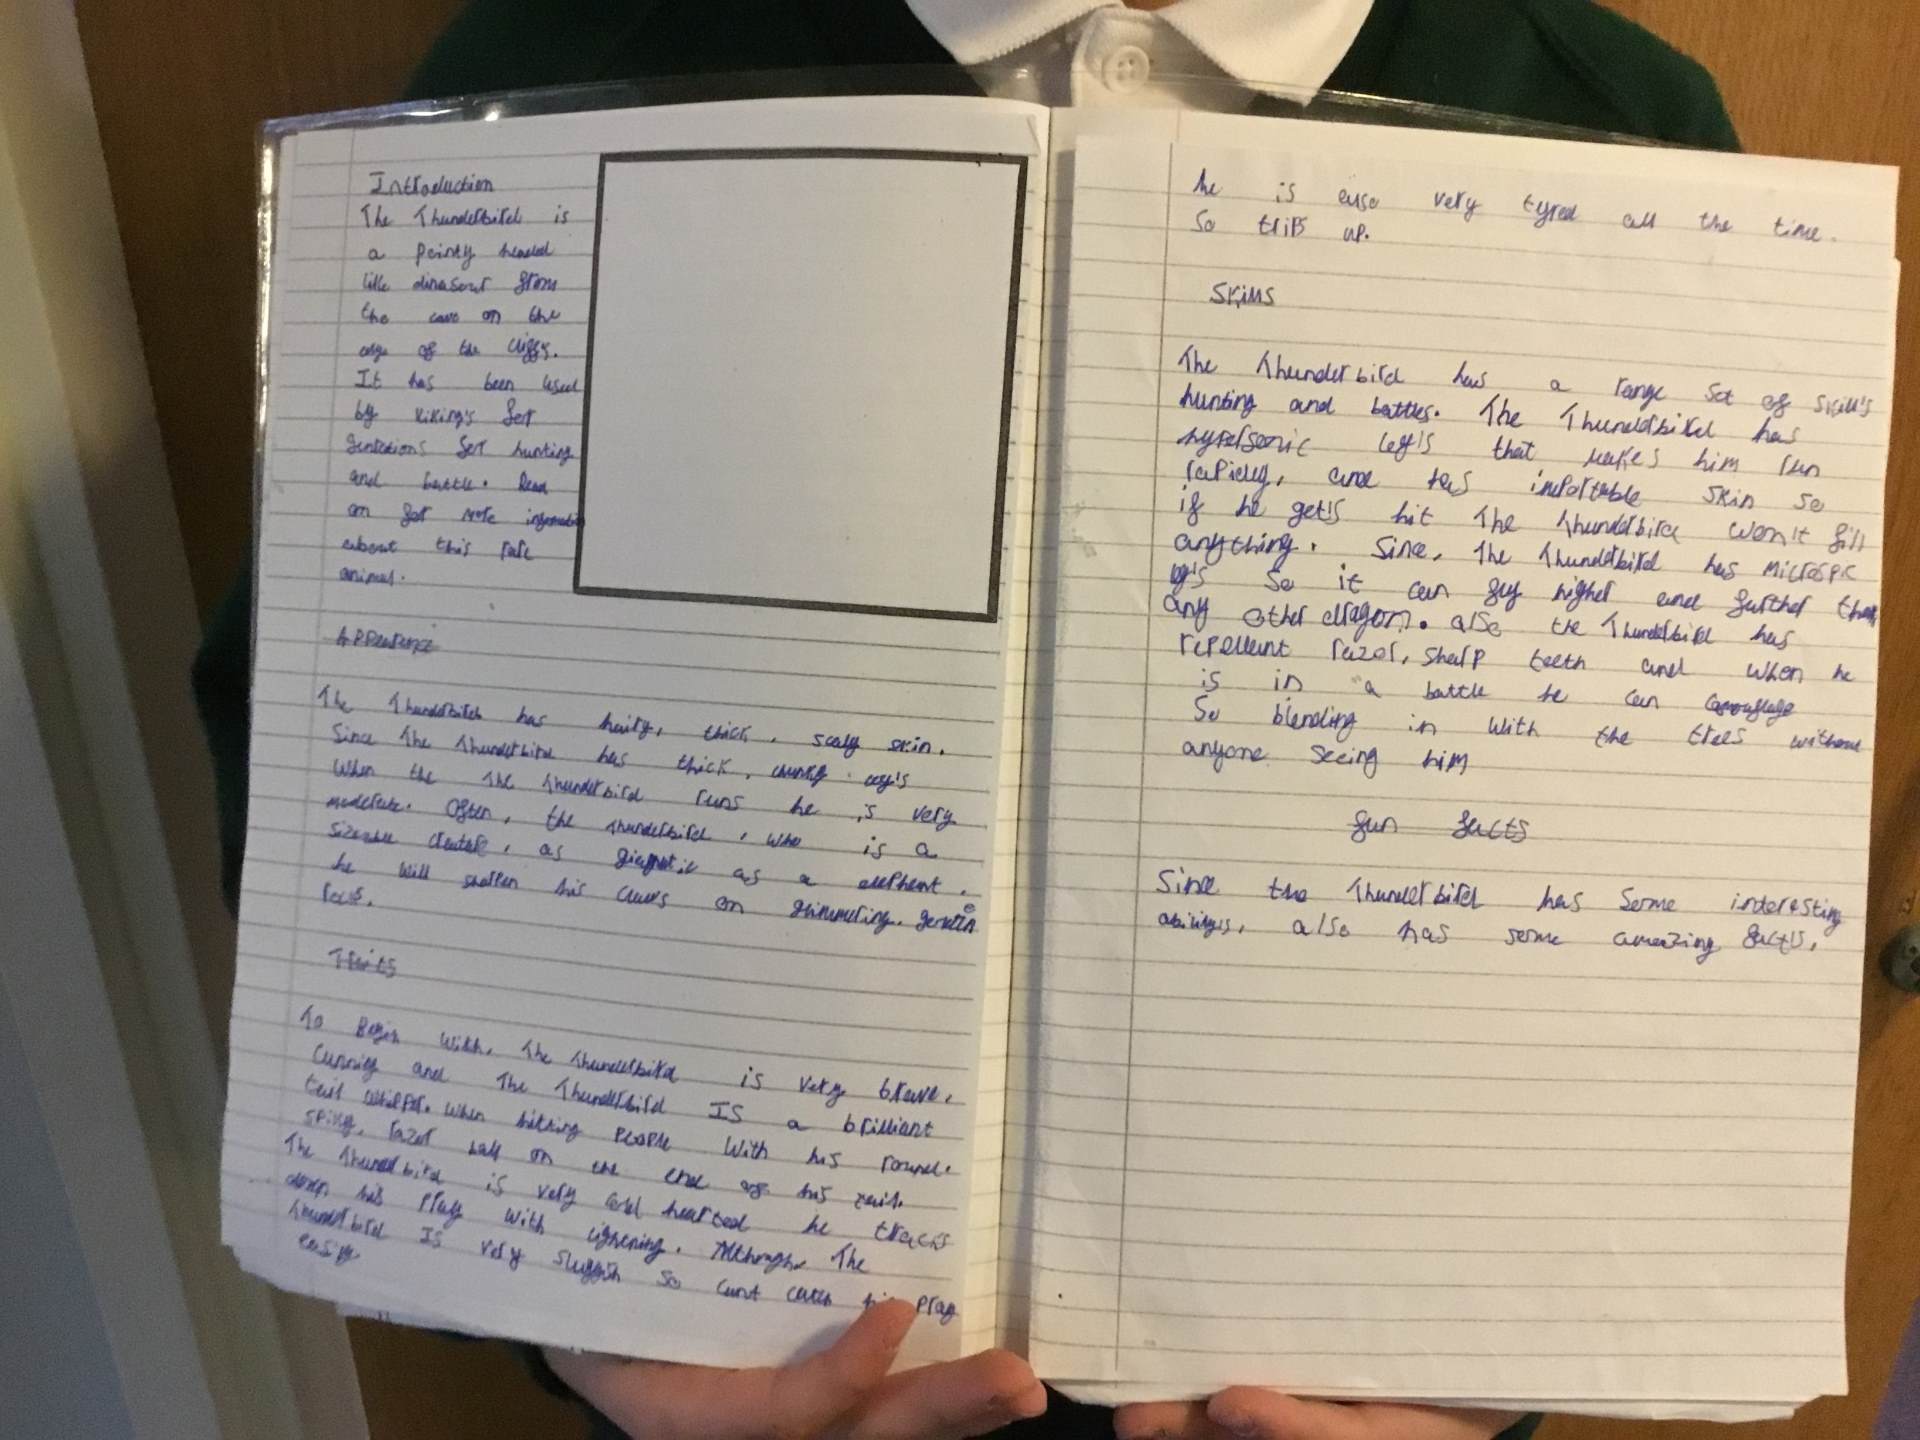 Introduction
The Thunderbird is
a pointy headed
like dinasour from
the cave on the
edge of the cliffs.
It has been used
by viking's for
for hunting
and battle. Read
on for more
about this rare
animal.
The Thunderbird has hairy, thick, scaly skin.
Since The Thunderbird has thick, leg's
When the The Thunderbird runs he is very
moderate. Often, the thunderbird, who is a
as as a elephant.
he will his claws on glimmering,
Traits
To Begin with, The Thunderbird is very brave,
cunning and The Thunderbird IS a brilliant
tail When hitting people with his round.
spiky, razor ball on the end of his tail.
The Thunderbird is very hearted he tracks
down his Pray with Although. The
Thunderbird Is very so cant catch his Pray
he is very tyred all the time.
So trips up.
Skills
The Thunderbird has a range Set of skill's
hunting and battles. The Thunderbird has
hypersonic leg's that makes him run
and has skin so
if he get's hit The Thunderbird won't
anything. Since, The Thunderbird has
so it can fly higher and further than
any other dragon. also the Thunderbird has
repellent razor, sharp teeth and when he
is in a battle he can
So blending in with the trees without
anyone seeing him
fun facts
Since the Thunderbird has some interesting
also has some amazing fact's,